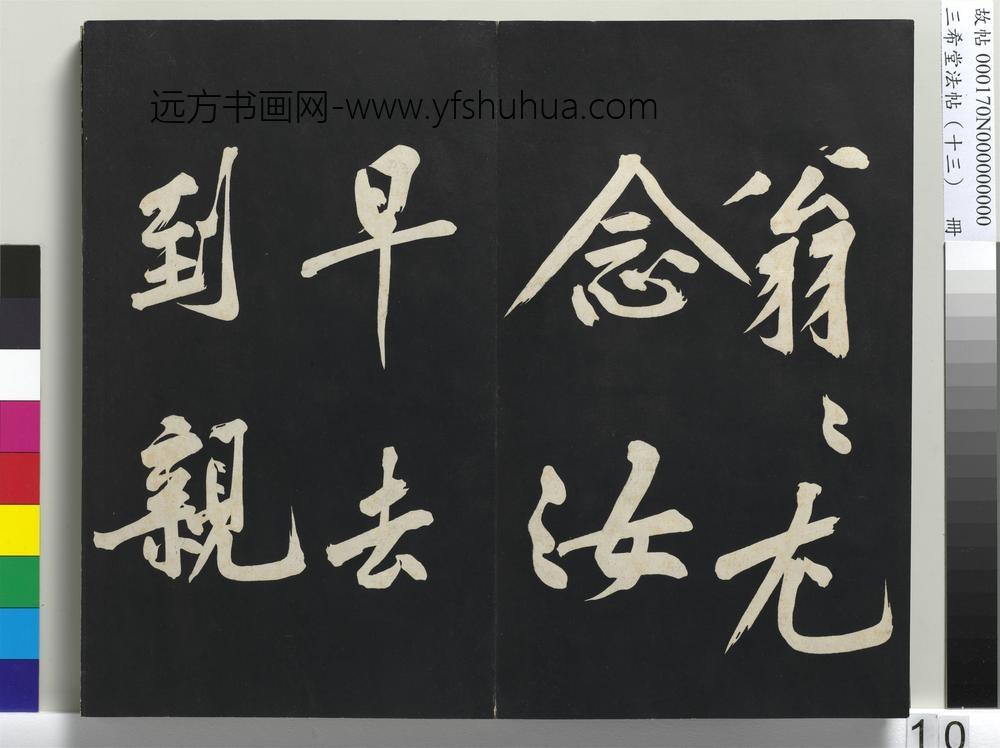 翁〻尤
念汝
早去
到親
远方书画网-www.yfshuhua.com
故帖 000170N000000000
三希堂法帖（十三） 冊
10